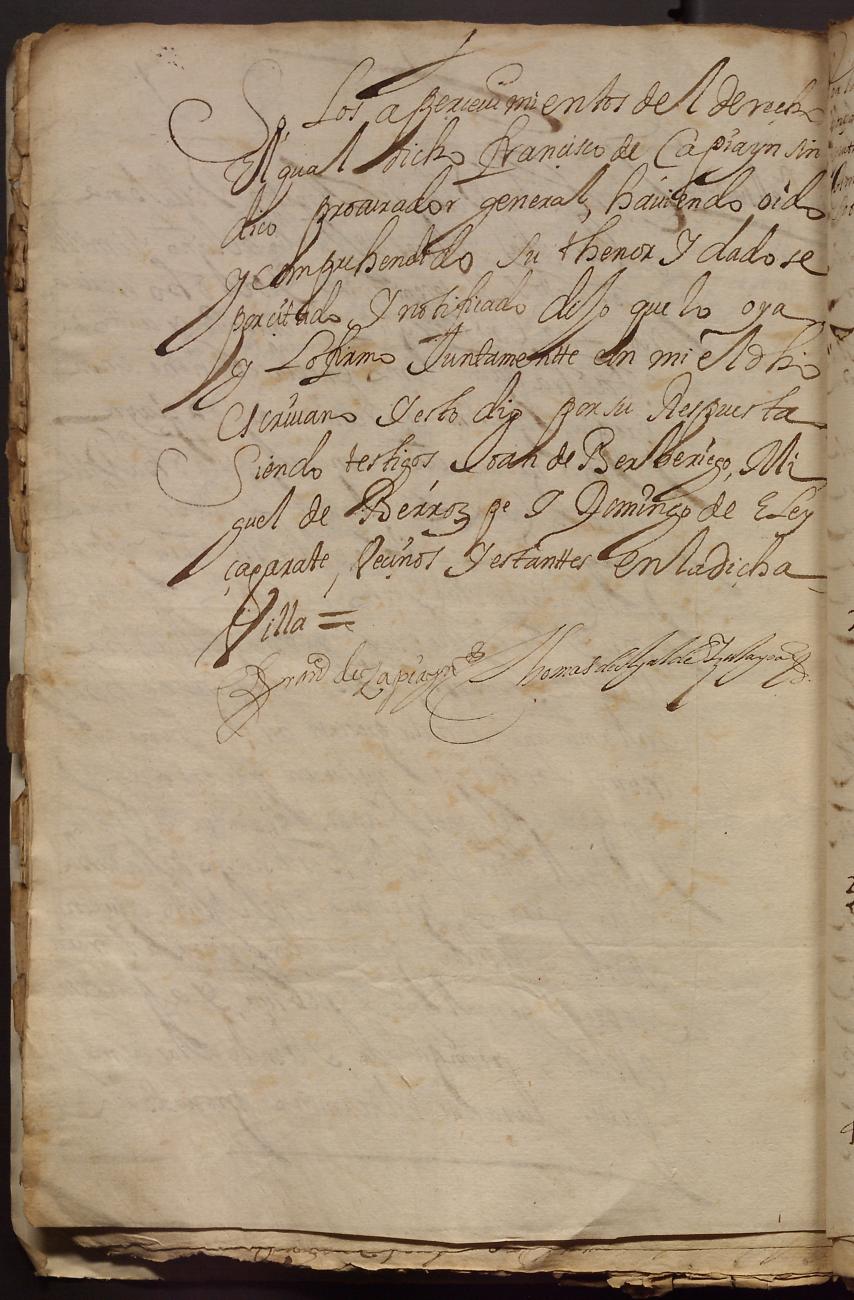 So Los apercivimientos del derecho
El qual dicho francisco de Capiayn sin
dico procurador general, haviendo oido
y comprehendido su thenor Y dadose
por citado, Y notificado dijo que lo oya
y Lo firmo Juntamentte con mi el dho
escrivano Y esto dio por su Respuesta
Siendo testigos Joan de Berrberiego, Mi
guel de Berroz pe Y Domingo de Eley
çaparate, Vecinos Y estanttes en la dicha
Villa =
de Capiayn Thomas de